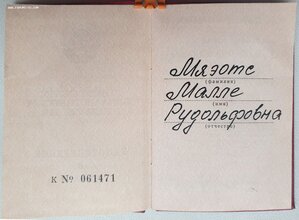 К № 061471
Мяэотс
(фамилия)
Малле
(имя)
Рудольфовна
(отчество)